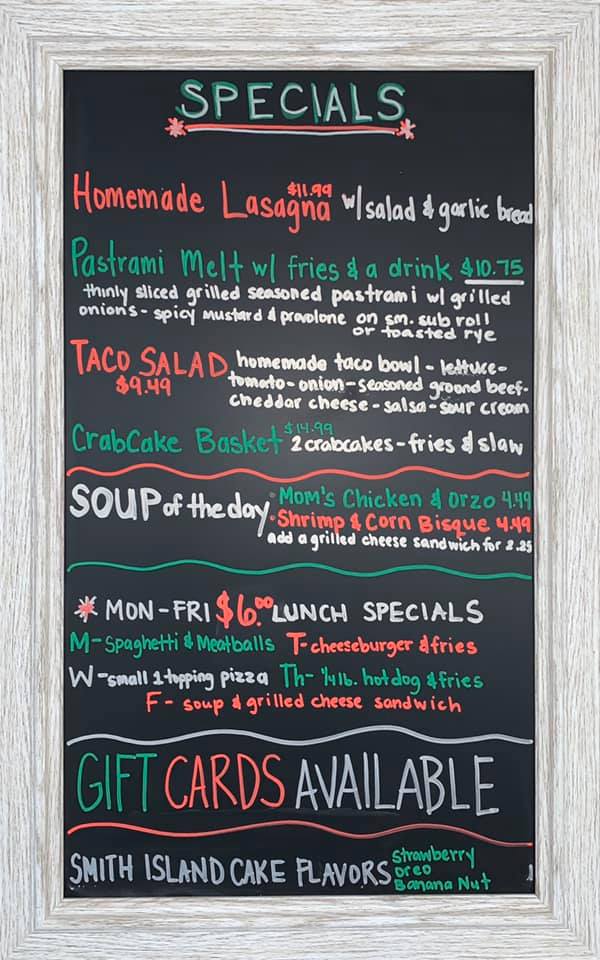 SPECIALS
Homemade Lasagna $11.99 w/ salad & garlic bread
Pastrami Melt w/ fries & a drink $10.75
thinly sliced grilled seasoned pastrami w/ grilled
onions - spicy mustard & provolone on sm. sub roll
or toasted rye
TACO SALAD homemade taco bowl - lettuce -
$9.49 tomato - onion - seasoned ground beef -
cheddar cheese - salsa - sour cream
CrabCake Basket $14.99 2 crabcakes - fries & slaw
SOUP of the day · Mom's Chicken & Orzo 4.49
· Shrimp & Corn Bisque 4.49
add a grilled cheese sandwich for 2.25
* MON-FRI $6.00 LUNCH SPECIALS
M - Spaghetti & Meatballs T - cheeseburger & fries
W - small 1 topping pizza Th - 1/4 lb. hot dog & fries
F - soup & grilled cheese sandwich
GIFT CARDS AVAILABLE
SMITH ISLAND CAKE FLAVORS Strawberry
Oreo
Banana Nut